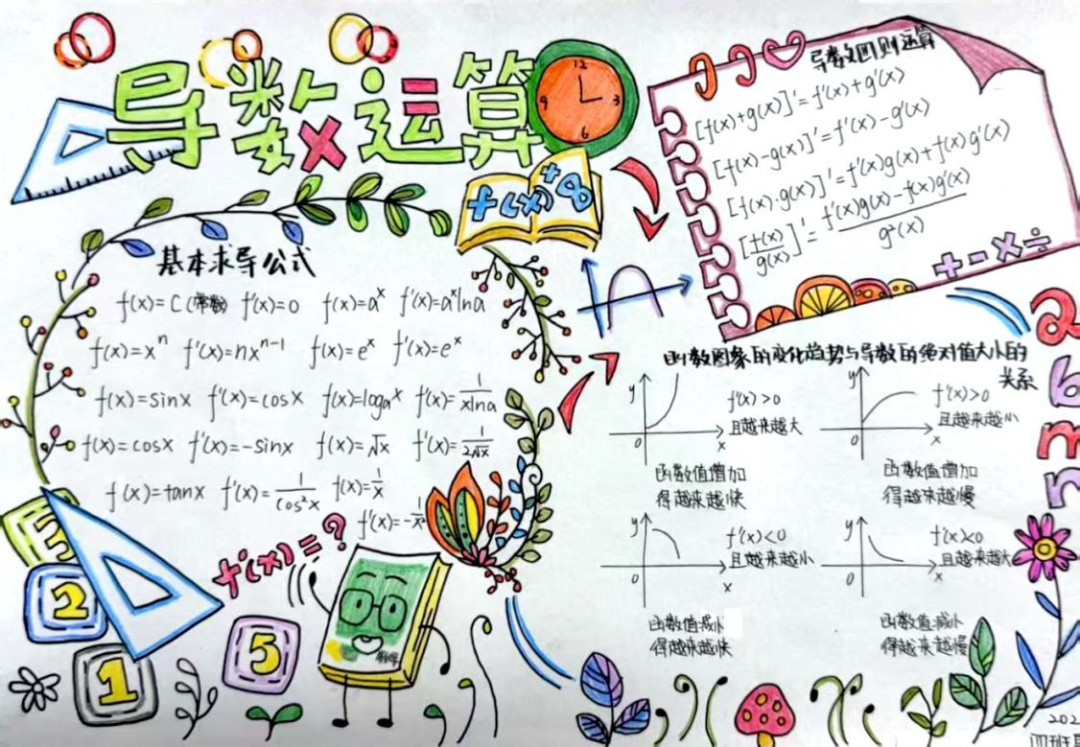 导数运算
12
3
6
9
f(x)+∞
基本求导公式
f(x)=C(常数) f'(x)=0 f(x)=aˣ f'(x)=aˣlna
f(x)=xⁿ f'(x)=nxⁿ⁻¹ f(x)=eˣ f'(x)=eˣ
f(x)=sinx f'(x)=cosx f(x)=logaˣ f'(x)=1/xlna
f(x)=cosx f'(x)=-sinx f(x)=√x f'(x)=1/2√x
f(x)=tanx f'(x)=1/cos²x f(x)=1/x
f'(x)=-1/x²
f'(x)=?
3
2
1
5
导数四则运算
[f(x)+g(x)]'=f'(x)+g'(x)
[f(x)-g(x)]'=f'(x)-g'(x)
[f(x)·g(x)]'=f'(x)g(x)+f(x)g'(x)
[f(x)/g(x)]'=f'(x)g(x)-f(x)g'(x)/g²(x)
+-×÷
函数图象的变化趋势与导数的绝对值大小的
关系
y
0
x
f'(x)>0
且越来越大
函数值增加
得越来越快
y
0
x
f'(x)>0
且越来越小
函数值增加
得越来越慢
y
0
x
f'(x)<0
且越来越小
函数值减小
得越来越快
y
0
x
f'(x)<0
且越来越大
函数值减小
得越来越慢
2
6
m
n
202